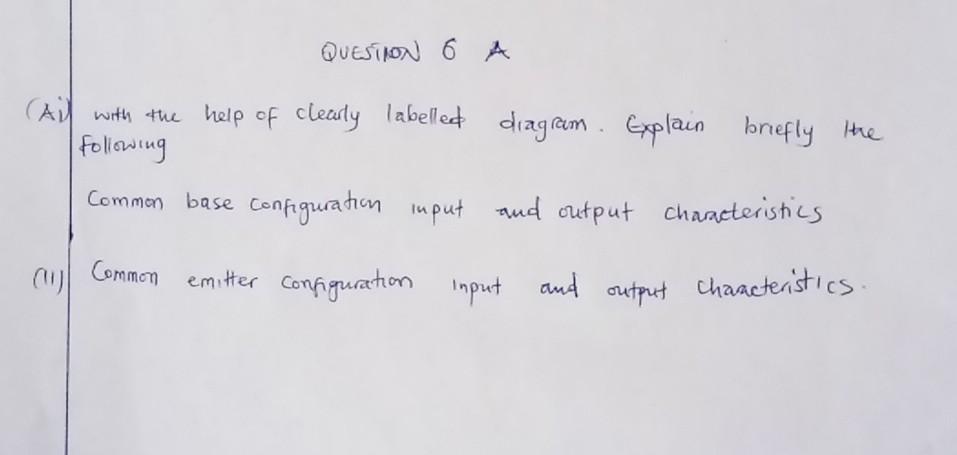 QUESTION 6 A
(Ai) with the help of clearly labelled diagram. Explain briefly the
following
Common base configuration input and output characteristics
(11) Common emitter configuration input and output characteristics.